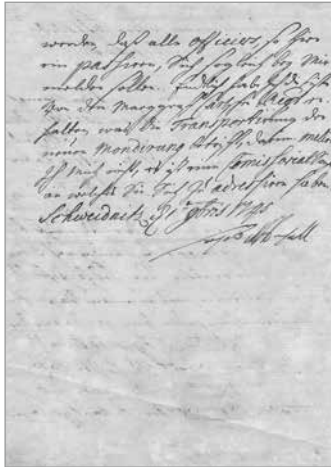 werden, daß alle officiers, so hier
ein passiren, sich sogleich bey mir
melden sollen. Endlich habe
von den Marggraff Carls
halten, was die Transportirung der
neuen Mondirung betrifft, darum
ich mich nicht, es ist ein Comissariat
an welches Sie sich zu adressiren haben
Schweidnitz, 1745